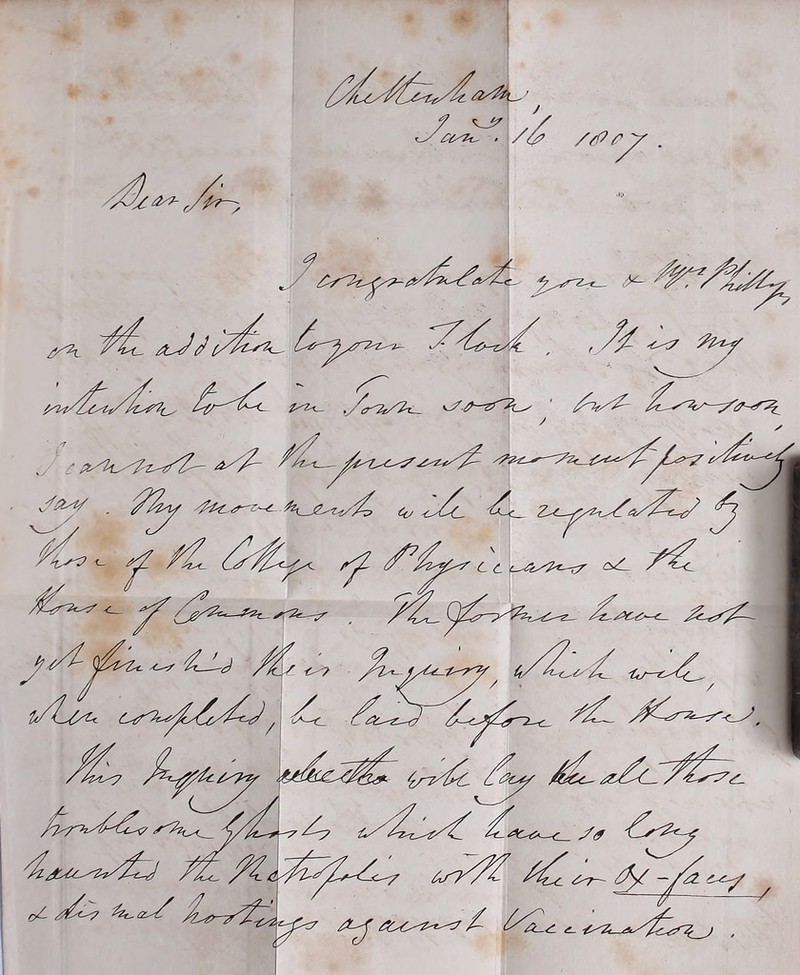 Cheltenham,
Jany. 16 1807.
Dear Sir,
I congratulate you & Mrs. Phillips
on the addition to your Flock. It is my
intention to be in Town soon; but how soon,
I cannot at the present moment positively
say. My movements will be regulated by
those of the College of Physicians & the
House of Commons. The former have not
yet finish'd their Inquiry, which will,
when completed, be laid before the House.
This Inquiry will lay all those
troublesome Ghosts which have so long
haunted the Metropolis with their Ox-faces,
& dismal hootings against Vaccination.